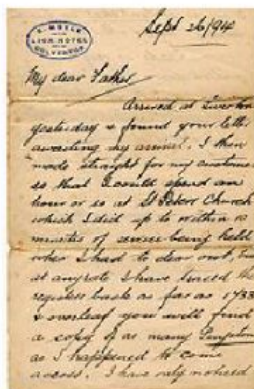 LION HOTEL
Sept 26/94
My dear Father
Arrived at Tiverton
yesterday & found your letter
awaiting my arrival. I then
made straight for my customers
so that I could spend an
hour or so at St Peters Church
which I did up to within 10
minutes of service being held
when I had to clear out, but
at anyrate I have traced the
registers back as far as 1733
& overleaf you will find
a copy of as many
as I happened to come
across. I have only noticed